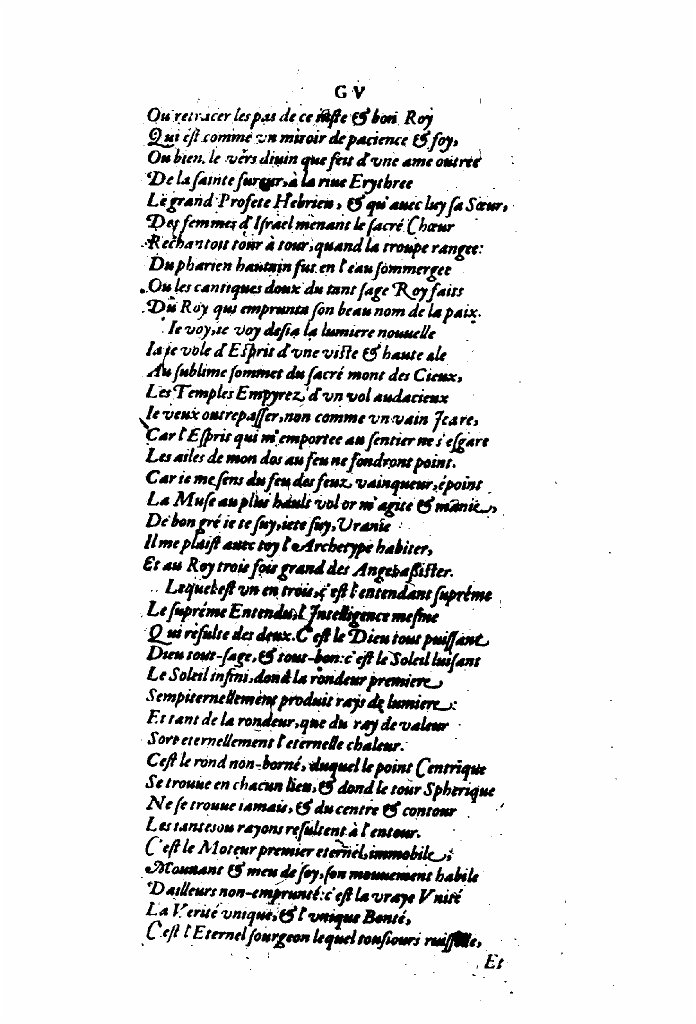 G V
Ou retracer les pas de ce iuste & bon Roy
Qui est comme vn miroir de pacience & foy,
Ou bien le vêrs diuin que feit d'vne ame outrée
De la sainte fureur, à la riue Erythree
Le grand Profete Hebrieu, & qu'auec luy sa Sœur,
Des femmes d'Israel menant le sacré Chœur
Rechantoit tour à tour, quand la troupe rangee
Du pharien hautain fut en l'eau sommergee
Ou les cantiques doux du tant sage Roy faits
Du Roy qui emprunta son beau nom de la paix.
Ie voy, ie voy desia la lumiere nouuelle
Ia je vole d'Esprit d'vne viste & haute ale
Au sublime sommet du sacré mont des Cieux,
Les Temples Empyrez, d'vn vol audacieux
Ie veux outrepasser, non comme vn vain Icare,
Car l'Esprit qui m'emporte au sentier ne s'esgare
Les ailes de mon dos au feu ne fondront point.
Car ie me sens du feu des feuz vainqueur, époint
La Muse au plus hault vol or m'agite & manie,
De bon gré ie te suy, ie te suy, Vranie
Il me plaist auec toy l'Archetype habiter,
Et au Roy trois fois grand des Anges assister.
Lequel est vn en trois, c'est l'entendant supréme
Le supréme Entendu, l'Intelligence mesme
Qui résulte des deux. C'est le Dieu tout puissant
Dieu tout-sage, & tout-bon: c'est le Soleil luisant
Le Soleil infini, dond la rondeur premiere
Sempiternellement produit rays de lumiere:
Et tant de la rondeur, que du ray de valeur
Sort eternellement l'eternelle chaleur.
C'est le rond non-borné, duquel le point Centrique
Se trouue en chacun lieu, & dond le tour Spherique
Ne se trouue iamais, & du centre & contour
Les rayons resultent à l'entour.
C'est le Moteur premier eternel, immobile,
Mouuant & meu de soy, son mouuement habile
D'ailleurs non-emprunté: c'est la vraye Vnité
La Verité vnique, & l'vnique Bonté,
C'est l'Eternel sourgeon lequel tousiours ruisselle,
Et